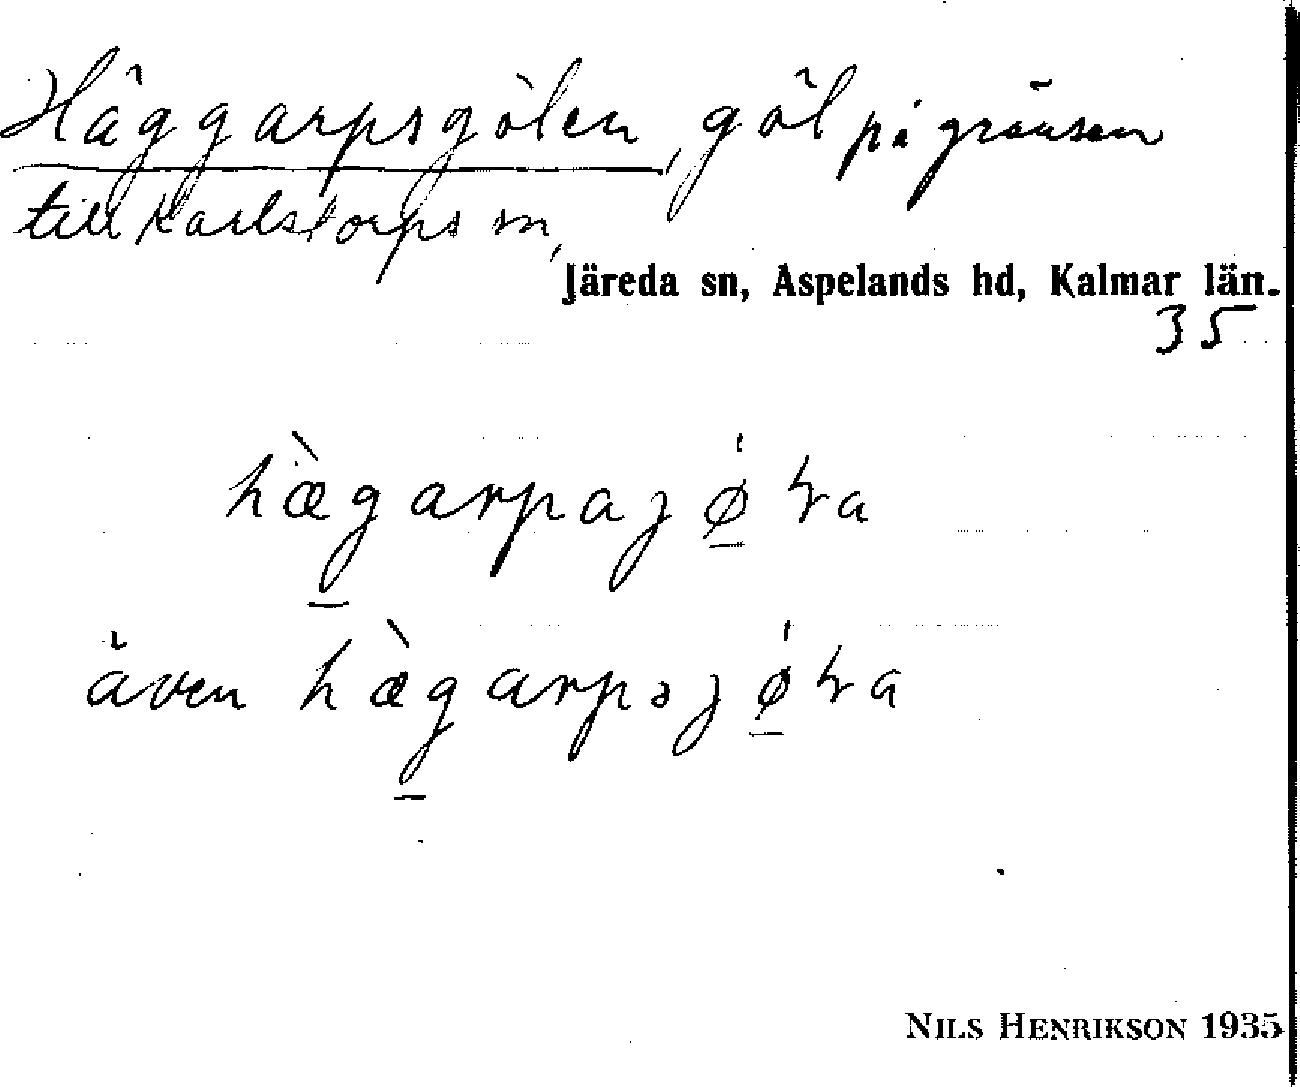 Häggarpsgölen, göl på gränsen
till Karlstorps sn,
Järeda sn, Aspelands hd, Kalmar län.
35
hæ̀g̲arpaȷǿ̲ɬa
även hæ̀g̲arpəȷǿ̲ɬa
NILS HENRIKSON 1935